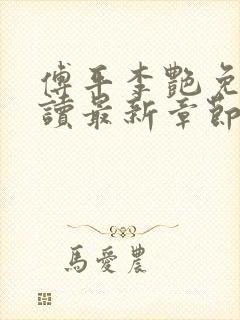 傅平李艷免
讀最新章節
馬愛農